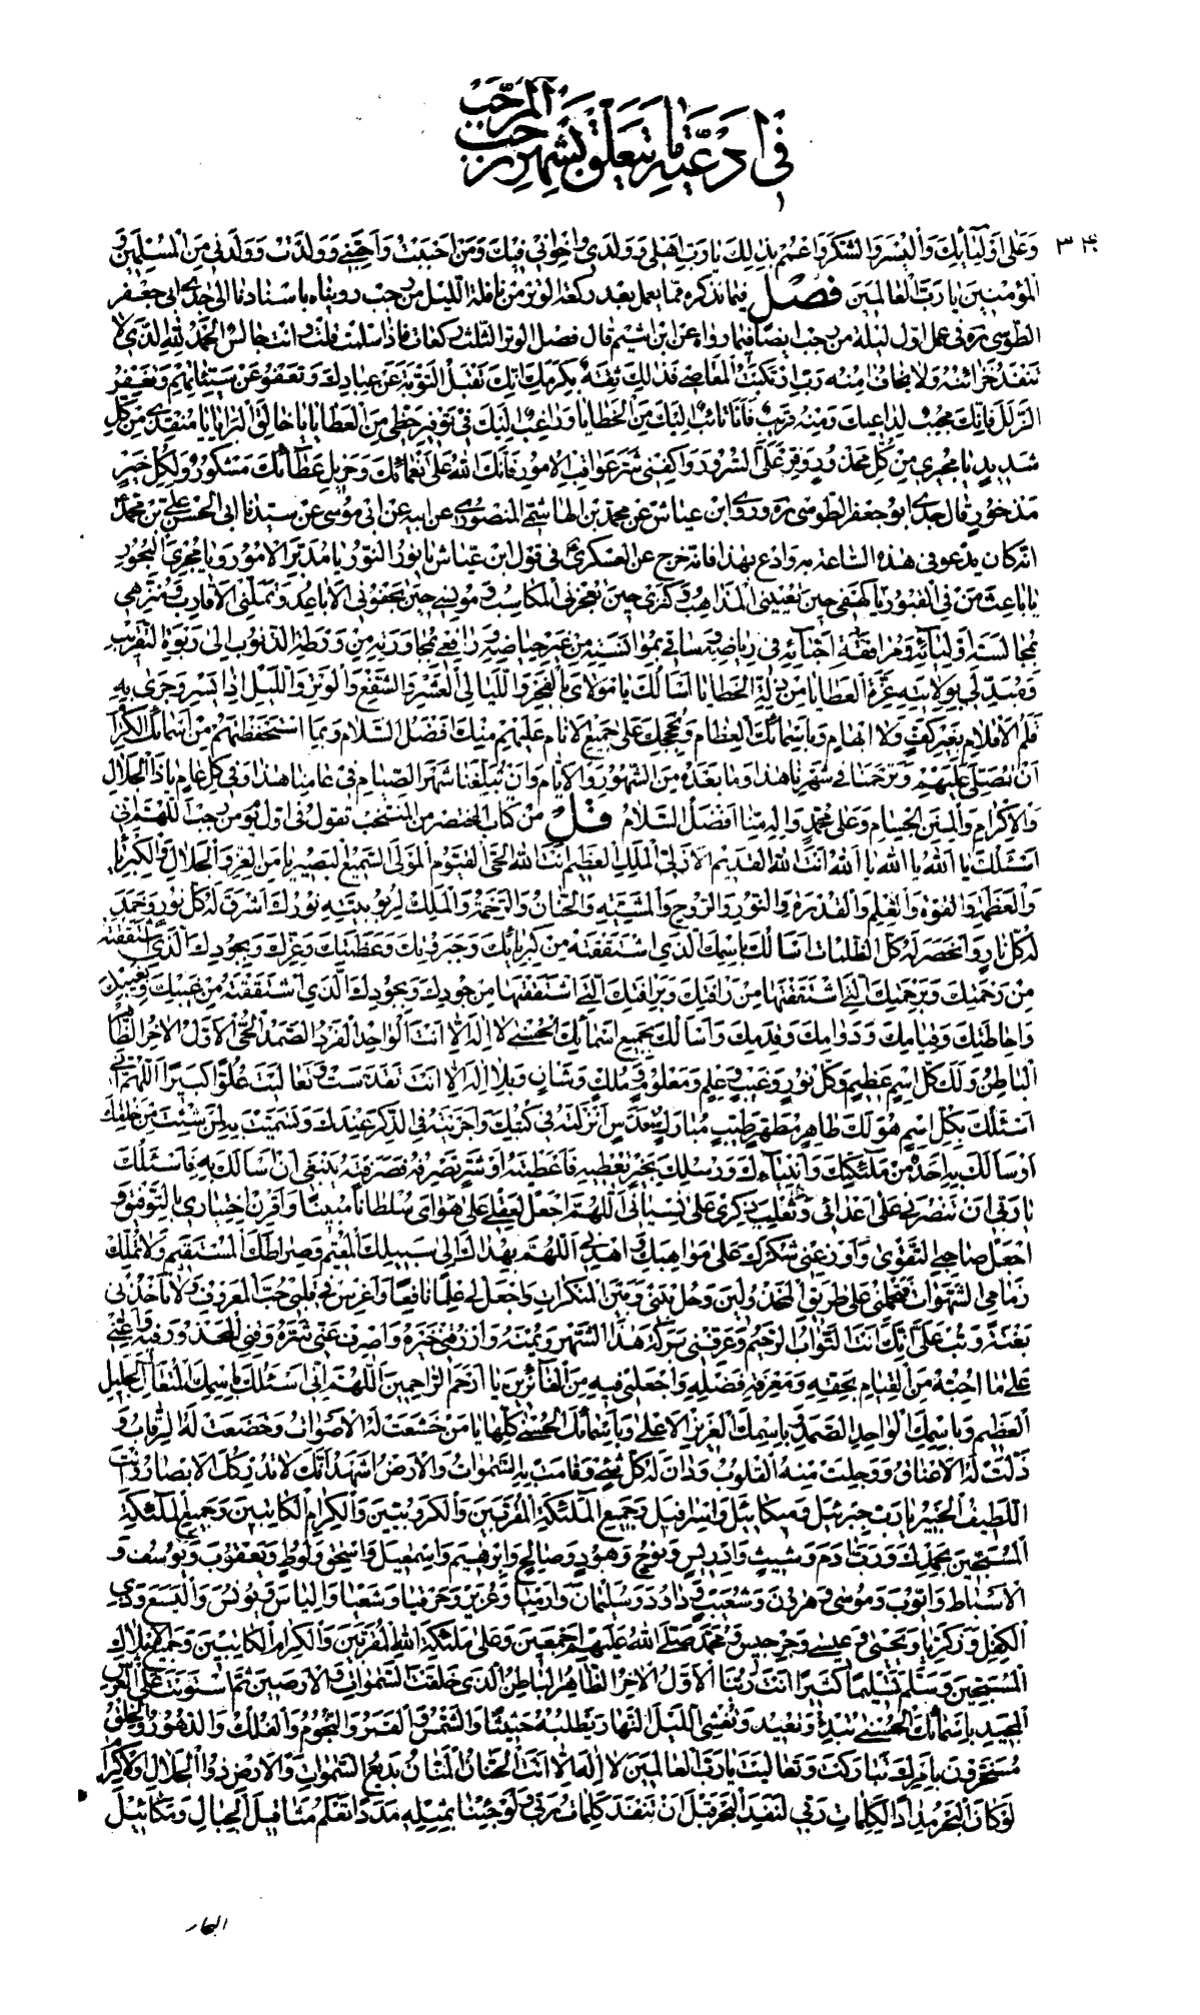 في ادعية ما يتعلق بشهر رجب المرجب
٦٣٠
وَعَلى اَوْلِيائِكَ وَالْيُسْرَ وَالشُّكْرَ وَاعْمُمْ بِذلِكَ يا رَبِّ اَهْلي وَوَلَدي وَاِخْواني فيكَ وَمَنْ اَحْبَبْتُ وَاَحَبَّني وَوَلَدْتُ وَوَلَدَني مِنَ الْمُسْلِمينَ وَ
الْمُؤْمِنينَ يا رَبَّ الْعالَمينَ فصل فيما نذكره مما يعمل بعد ركعة الوتر من نافلة الليل من رجب رويناه باسنادنا الى جدي ابي جعفر
الطوسي ره في عمل اول ليلة من رجب ايضا فيما رواه عن ابن اشيم قال فصل الوتر الثلث ركعات فاذا سلمت قلت وانت جالس اَلْحَمْدُ لِلّهِ الَّذي لا
تَنْفَدُ خَزائِنُهُ وَلا يَخافُ امِنُهُ رَبِّ اِنِ ارْتَكَبْتُ الْمَعاصِيَ فَذلِكَ ثِقَةٌ بِكَرَمِكَ اِنَّكَ تَقْبَلُ التَّوْبَةَ عَنْ عِبادِكَ وَتَعْفُو عَنْ سَيِّئاتِهِمْ وَتَغْفِرُ
الزَّلَلَ فَاِنَّكَ مُجيبٌ لِداعيكَ وَمِنْهُ قَريبٌ فَاَنَا تائِبٌ اِلَيْكَ مِنَ الْخَطايا وَراغِبٌ اِلَيْكَ في تَوْفيرِ حَظّي مِنَ الْعَطايا يا خالِقَ الْبَرايا يا مُنْقِذي مِنْ كُلِّ
شَديدٍ يا مُجيري مِنْ كُلِّ مَحْذُورٍ وَفِّرْ عَلَيَّ السُّرُورَ وَاكْفِني شَرَّ عَواقِبِ الْاُمُورِ فَاَنْتَ اللهُ عَلى نَعْمائِكَ وَجَزيلِ عَطائِكَ مَشْكُورٌ وَلِكُلِّ خَيْرٍ
مَذْخُورٌ قال جدي ابو جعفر الطوسي ره وروى ابن عياش عن محمد بن الهاشمي المنصوري عن ابيه عن ابي موسى عن سيدنا ابي الحسن علي بن محمد
انه كان يدعو في هذه الساعة به وادع بهذا فانه خرج عن العسكري في قول ابن عياش يا نُورَ النُّورِ يا مُدَبِّرَ الْاُمُورِ وَيا مُجْرِيَ الْبُحُورِ
يا باعِثَ مَنْ فِي الْقُبُورِ يا كَهْفي حينَ تُعْييني الْمَذاهِبُ وَكَنْزي حينَ تُعْجِزُني الْمَكاسِبُ وَمُونِسي حينَ تَجْفُوني الْاَباعِدُ وَتَمَلُّني الْاَقارِبُ وَمُنَزِّهي
بِمُجالَسَةِ اَوْلِيائِهِ وَمُرافَقَةِ اَحِبّائِهِ في رِياضِهِ وَساقِيَّ بِمُؤانَسَتِهِ مِنْ نَميرِ حِياضِهِ وَرافِعي بِمُجاوَرَتِهِ مِنْ وَرْطَةِ الذُّنُوبِ اِلى رَبْوَةِ التَّقْريبِ
وَمُبَدِّلي بِوِلايَتِهِ عِزَّةَ الْعَطايا مِنْ ذِلَّةِ الْخَطايا اَسْاَلُكَ يا مَوْلايَ بِالْفَجْرِ وَاللَّيالِي الْعَشْرِ وَالشَّفْعِ وَالْوَتْرِ وَاللَّيْلِ اِذا يَسْرِ وَجَرى بِهِ
قَلَمُ الْاَقْلامِ بِغَيْرِ كَفٍّ وَلا اِبْهامٍ وَبِاَسْمائِكَ الْعِظامِ وَبِحُجَجِكَ عَلى جَميعِ الْاَنامِ عَلَيْهِمْ مِنْكَ اَفْضَلُ السَّلامِ وَبِمَا اسْتَحْفَظْتَهُمْ مِنْ اَسْمائِكَ الْكِرامِ
اَنْ تُصَلِّيَ عَلَيْهِمْ وَتَرْحَمَنا في شَهْرِنا هذا وَما بَعْدَهُ مِنَ الشُّهُورِ وَالْاَيّامِ وَاَنْ تُبَلِّغَنا شَهْرَ الصِّيامِ في عامِنا هذا وَفي كُلِّ عامٍ يا ذَا الْجَلالِ
وَالْاِكْرامِ وَالْمِنَنِ الْجِسامِ وَعَلى مُحَمَّدٍ وَالِهِ مِنّا اَفْضَلُ السَّلامِ من كتاب المختصر من المنتخب تقول في اول يوم من رجب اَللّهُمَّ اِنّي
اَسْئَلُكَ يا اَللهُ يا اَللهُ يا اَللهُ اَنْتَ اللهُ الْقَديمُ الْاَزَلِيُّ الْمَلِكُ الْعَظيمُ اَنْتَ اللهُ الْحَيُّ الْقَيُّومُ الْمَوْلَى السَّميعُ الْبَصيرُ يا مَنِ الْعِزُّ وَالْجَلالُ وَالْكِبْرِياءُ
وَالْعَظَمَةُ وَالْقُوَّةُ وَالْعِلْمُ وَالْقُدْرَةُ وَالنُّورُ وَالرُّوحُ وَالْمَشِيَّةُ وَالْحَنانُ وَالرَّحْمَةُ وَالْمُلْكُ لِرُبُوبِيَّتِهِ نُورُكَ اَشْرَقَ لَهُ كُلُّ نُورٍ وَخَمَدَ
لَهُ كُلُّ نارٍ وَانْحَصَرَ لَهُ كُلُّ الظُّلُماتِ اَسْاَلُكَ بِاسْمِكَ الَّذي اشْتَقَقْتَهُ مِنْ كِبْرِيائِكَ وَجَبَرُوتِكَ وَعَظَمَتِكَ وَعِزِّكَ وَبِجُودِكَ الَّذي اشْتَقَقْتَهُ
مِنْ رَحْمَتِكَ وَبِرَحْمَتِكَ الَّتي اشْتَقَقْتَها مِنْ رَأْفَتِكَ وَبِرَأْفَتِكَ الَّتي اشْتَقَقْتَها مِنْ جُودِكَ وَبِجُودِكَ الَّذي اشْتَقَقْتَهُ مِنْ غَيْبِكَ وَبِغَيْبِكَ
وَاِحاطَتِكَ وَقِيامِكَ وَدَوامِكَ وَقِدَمِكَ وَاَسْاَلُكَ بِجَميعِ اَسْمائِكَ الْحُسْنى لا اِلهَ اِلّا اَنْتَ الْواحِدُ الْفَرْدُ الصَّمَدُ الْحَيُّ الْاَوَّلُ الْاخِرُ الظّاهِرُ
الْباطِنُ وَلَكَ كُلُّ اسْمٍ عَظيمٍ وَكُلُّ نُورٍ وَغَيْبٍ وَعِلْمٍ وَمَعْلُومٍ وَمُلْكٍ وَشَأْنٍ وَبِلا اِلهَ اِلّا اَنْتَ تَقَدَّسْتَ وَتَعالَيْتَ عُلُوًّا كَبيرًا اَللّهُمَّ اِنّي
اَسْئَلُكَ بِكُلِّ اسْمٍ هُوَ لَكَ طاهِرٍ مُطَهَّرٍ طَيِّبٍ مُبارَكٍ مُقَدَّسٍ اَنْزَلْتَهُ في كُتُبِكَ وَاَجْرَيْتَهُ فِي الذِّكْرِ عِنْدَكَ وَتَسَمَّيْتَ بِهِ لِمَنْ شِئْتَ مِنْ خَلْقِكَ
اَوْ سَاَلَكَ بِهِ اَحَدٌ مِنْ مَلئِكَتِكَ وَاَنْبِيائِكَ وَرُسُلِكَ بِخَيْرٍ تُعْطيهِ فَاَعْطَيْتَهُ اَوْ شَرٍّ تَصْرِفُهُ فَصَرَفْتَهُ يَنْبَغي اَنْ سَاَلَكَ بِهِ فَاَسْئَلُكَ
يا رَبِّ اَنْ تَنْصُرَني عَلى اَعْدائي وَتُغَلِّبَ ذِكْري عَلى نِسْياني اَللّهُمَّ اجْعَلْ لِعَقْلي عَلى هَوايَ سُلْطانًا مُبينًا وَاقْرِنِ اخْتِياري بِالتَّوْفيقِ وَ
اجْعَلْ صاحِبِي التَّقْوى وَاَوْزِعْني شُكْرَكَ عَلى مَواهِبِكَ وَاهْدِني اَللّهُمَّ بِهُداكَ اِلى سَبيلِكَ الْمُقيمِ وَصِراطِكَ الْمُسْتَقيمِ وَلا تُمَلِّكْ
زِمامِي الشَّهَواتِ فَتَحْمِلَني عَلى طَريقِ الْمَخْذُولينَ وَحُلْ بَيْني وَبَيْنَ الْمُنْكَراتِ وَاجْعَلْ لي عِلْمًا نافِعًا وَاغْرِسْ في قَلْبي حُبَّ الْمَعْرُوفِ وَلا تَأْخُذْني
بَغْتَةً وَتُبْ عَلَيَّ اِنَّكَ اَنْتَ التَّوّابُ الرَّحيمُ وَعَرِّفْني بَرَكَةَ هذَا الشَّهْرِ وَيُمْنَهُ وَارْزُقْني خَيْرَهُ وَاصْرِفْ عَنّي شَرَّهُ وَقِني الْمَحْذُورَ فيهِ وَاَعِنّي
عَلى ما اُحِبُّهُ مِنَ الْقِيامِ بِحَقِّهِ وَمَعْرِفَةِ فَضْلِهِ وَاجْعَلْني فيهِ مِنَ الْفائِزينَ يا اَرْحَمَ الرّاحِمينَ اَللّهُمَّ اِنّي اَسْئَلُكَ بِاسْمِكَ الْمُتَعالِ الْجَليلِ
الْعَظيمِ وَبِاسْمِكَ الْواحِدِ الصَّمَدِ وَبِاسْمِكَ الْعَزيزِ الْاَعْلى وَبِاَسْمائِكَ الْحُسْنى كُلِّها يا مَنْ خَشَعَتْ لَهُ الْاَصْواتُ وَخَضَعَتْ لَهُ الرِّقابُ وَ
ذَلَّتْ لَهُ الْاَعْناقُ وَوَجِلَتْ مِنْهُ الْقُلُوبُ وَدانَ لَهُ كُلُّ شَيْءٍ وَقامَتْ بِهِ السَّمواتُ وَالْاَرْضُ اَشْهَدُ اَنَّكَ لا تُدْرِكُكَ الْاَبْصارُ وَاَنْتَ
اللَّطيفُ الْخَبيرُ يا رَبَّ جِبْرَئيلَ وَميكائيلَ وَاِسْرافيلَ وَجَميعِ الْمَلئِكَةِ الْمُقَرَّبينَ وَالْكَرُوبِيّينَ وَالْكِرامِ الْكاتِبينَ وَجَميعِ الْمَلئِكَةِ
الْمُسَبِّحينَ بِحَمْدِكَ وَرَبَّ ادَمَ وَشيثٍ وَاِدْريسَ وَنُوحٍ وَهُودٍ وَصالِحٍ وَاِبْرهيمَ وَاِسْمعيلَ وَاِسْحقَ وَلُوطٍ وَيَعْقُوبَ وَيُوسُفَ وَ
الْاَسْباطِ وَاَيُّوبَ وَمُوسى وَهرُونَ وَشُعَيْبٍ وَداوُدَ وَسُلَيْمانَ وَاِرْمِيا وَعُزَيْرٍ وَحِزْقيا وَشَعْيا وَاِلْياسَ وَيُونُسَ وَالْيَسَعِ وَذِي
الْكِفْلِ وَزَكَرِيّا وَيَحْيى وَعيسى وَجِرْجيسَ وَمُحَمَّدٍ صَلَّى اللهُ عَلَيْهِمْ اَجْمَعينَ وَعَلى مَلئِكَةِ اللهِ الْمُقَرَّبينَ وَالْكِرامِ الْكاتِبينَ وَجَميعِ الْاَمْلاكِ
الْمُسَبِّحينَ وَسَلَّمَ تَسْليمًا كَثيرًا اَنْتَ رَبُّنَا الْاَوَّلُ الْاخِرُ الظّاهِرُ الْباطِنُ الَّذي خَلَقْتَ السَّمواتِ وَالْاَرَضينَ ثُمَّ اسْتَوَيْتَ عَلَى الْعَرْشِ
الْمَجيدِ بِاَسْمائِكَ الْحُسْنى تُبْدِئُ وَتُعيدُ وَتُغْشِي اللَّيْلَ النَّهارَ يَطْلُبُهُ حَثيثًا وَالشَّمْسَ وَالْقَمَرَ وَالنُّجُومَ وَالْفُلْكَ وَالدُّهُورَ وَالْخَلْقَ
مُسَخَّرُونَ بِاَمْرِكَ تَبارَكْتَ وَتَعالَيْتَ يا رَبَّ الْعالَمينَ لا اِلهَ اِلّا اَنْتَ الْحَنّانُ الْمَنّانُ بَديعُ السَّمواتِ وَالْاَرْضِ ذُو الْجَلالِ وَالْاِكْرامِ
لَوْ كانَ الْبَحْرُ مِدادًا لِكَلِماتِ رَبّي لَنَفِدَ الْبَحْرُ قَبْلَ اَنْ تَنْفَدَ كَلِماتُ رَبّي وَلَوْ جِئْنا بِمِثْلِهِ مَدَدًا تَعْلَمُ مَثاقيلَ الْجِبالِ وَمَكائيلَ
البحار